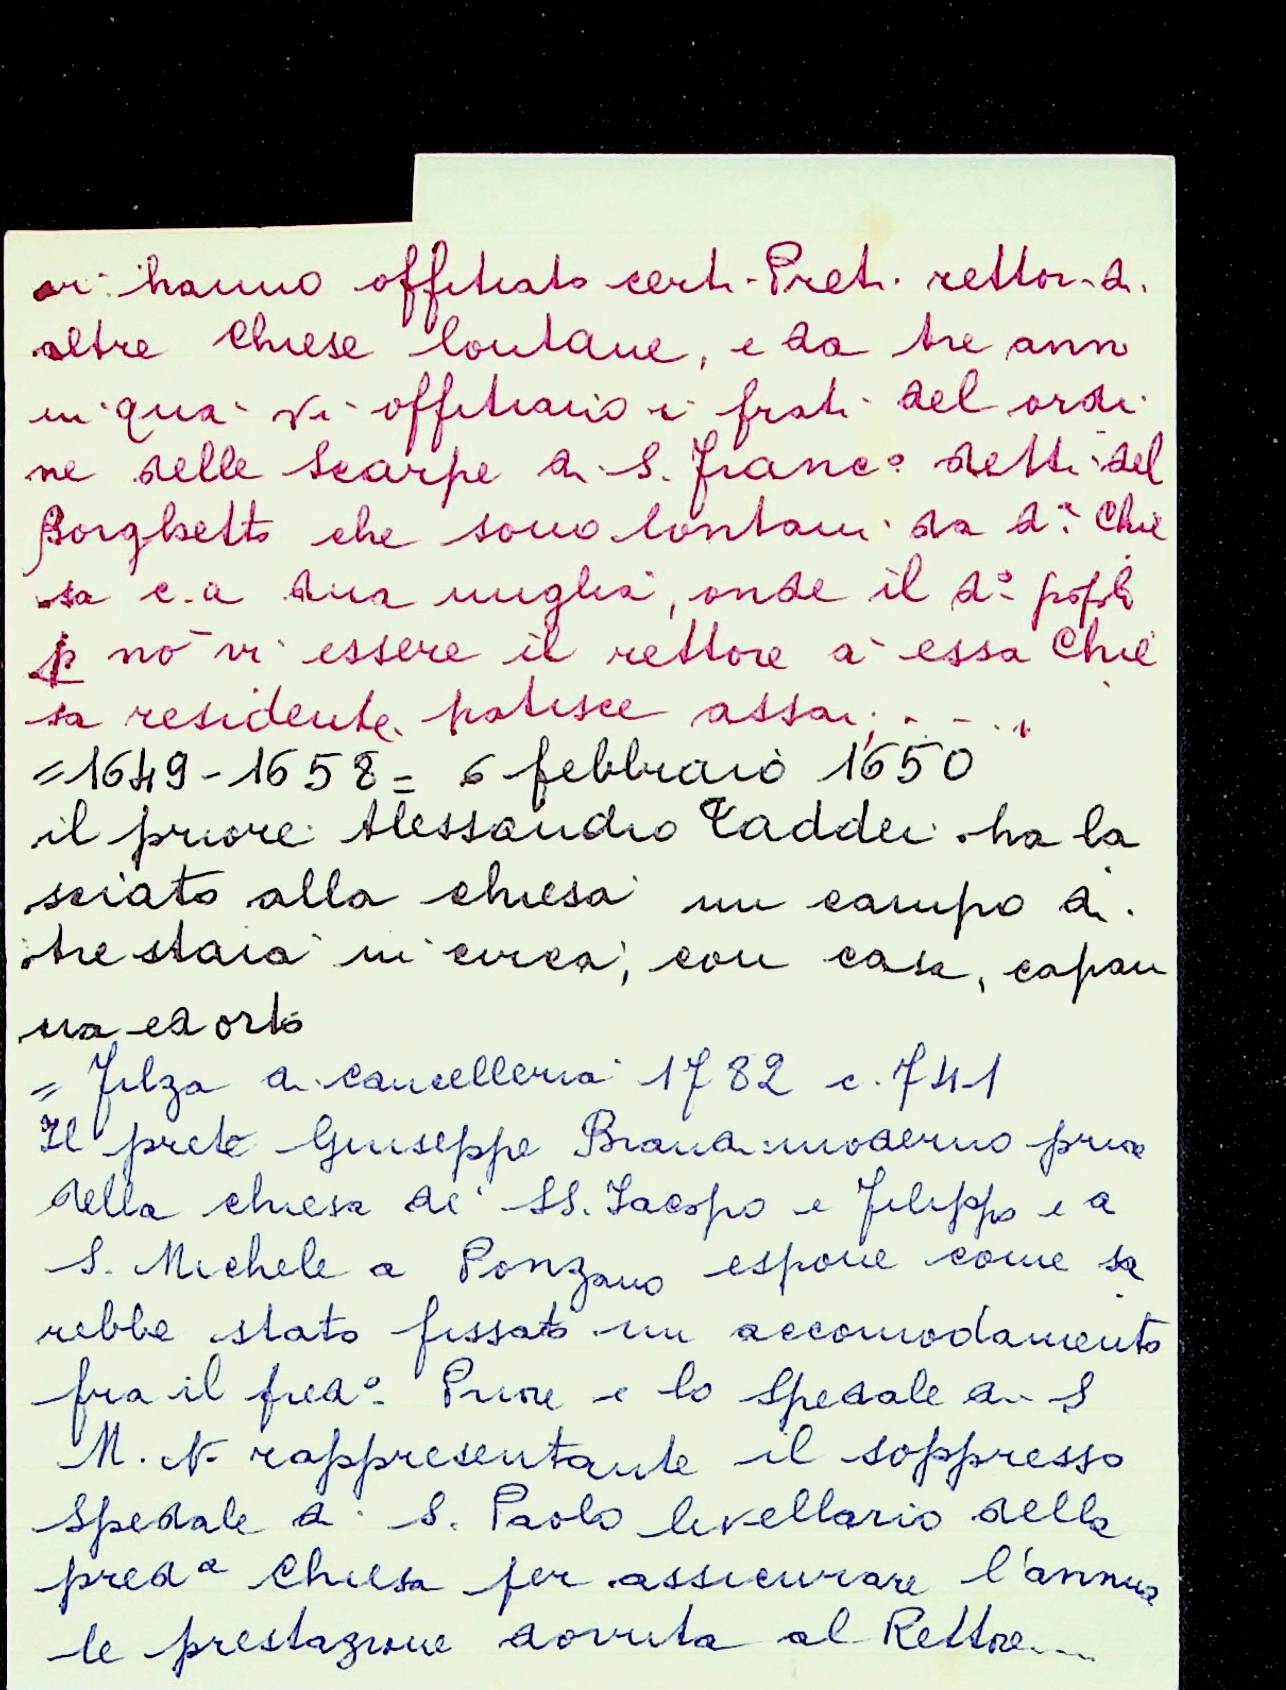 vi hanno offitiato certi Preti rettori di
altre Chiese lontane, e da tre anni
in qua vi offitiano i frati del ordi
ne delle Scarpe di S. Franc.º detti del
Borghetto che sono lontani da d.ª Chie
sa c.a dua miglia, onde il d.º popolo
p nō vi essere il rettore a essa Chie
sa residente patisce assai; . . . .
=1649-1658= 6 febbraio 1650
il priore Alessandro Taddei ha la
sciato alla chiesa un campo di
tre staia in circa, con casa, capan
na ed orto
= Filza di cancelleria 1782 c. 741
Il prete Giuseppe Brandi moderno prior
della chiesa de' SS. Jacopo e Filippo e a
S. Michele a Ponzano espone come sa
rebbe stato fissato un accomodamento
fra il pred.º Priore e lo Spedale di S
M. N. rappresentante il soppresso
Spedale di S. Paolo livellario della
predª Chiesa per assicurare l'annua
le prestazione dovuta al Rettore....